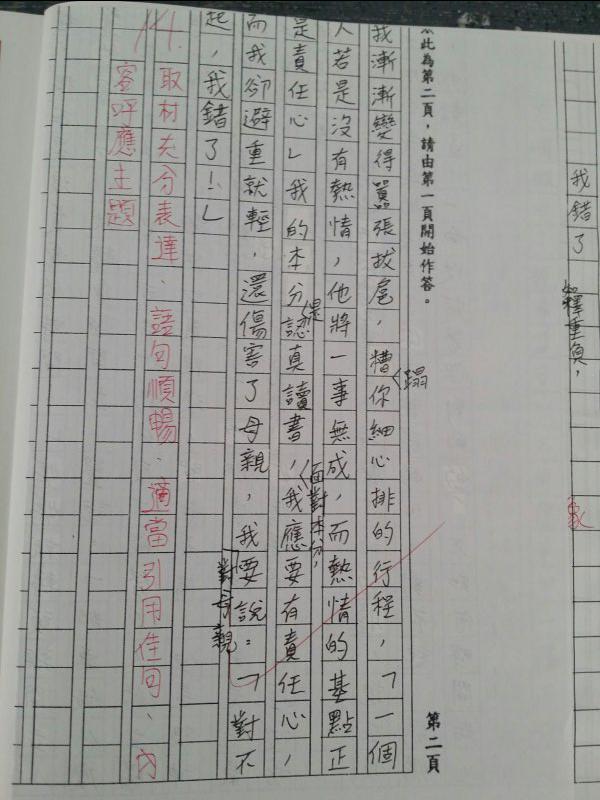 我錯了
如釋重負，
象
※此為第二頁，請由第一頁開始作答。
第二頁
我漸漸變得囂張拔扈，糟你細心排的行程，「一個
蹋
人若是沒有熱情，他將一事無成，而熱情的基點正
是責任心」我的本分認真讀書，我應要有責任心，
是
面對本分，
而我卻避重就輕，還傷害了母親，我要說：「對不
對母親
起，我錯了！」
14.
取材充分表達、語句順暢、適當引用佳句、內
容呼應主題